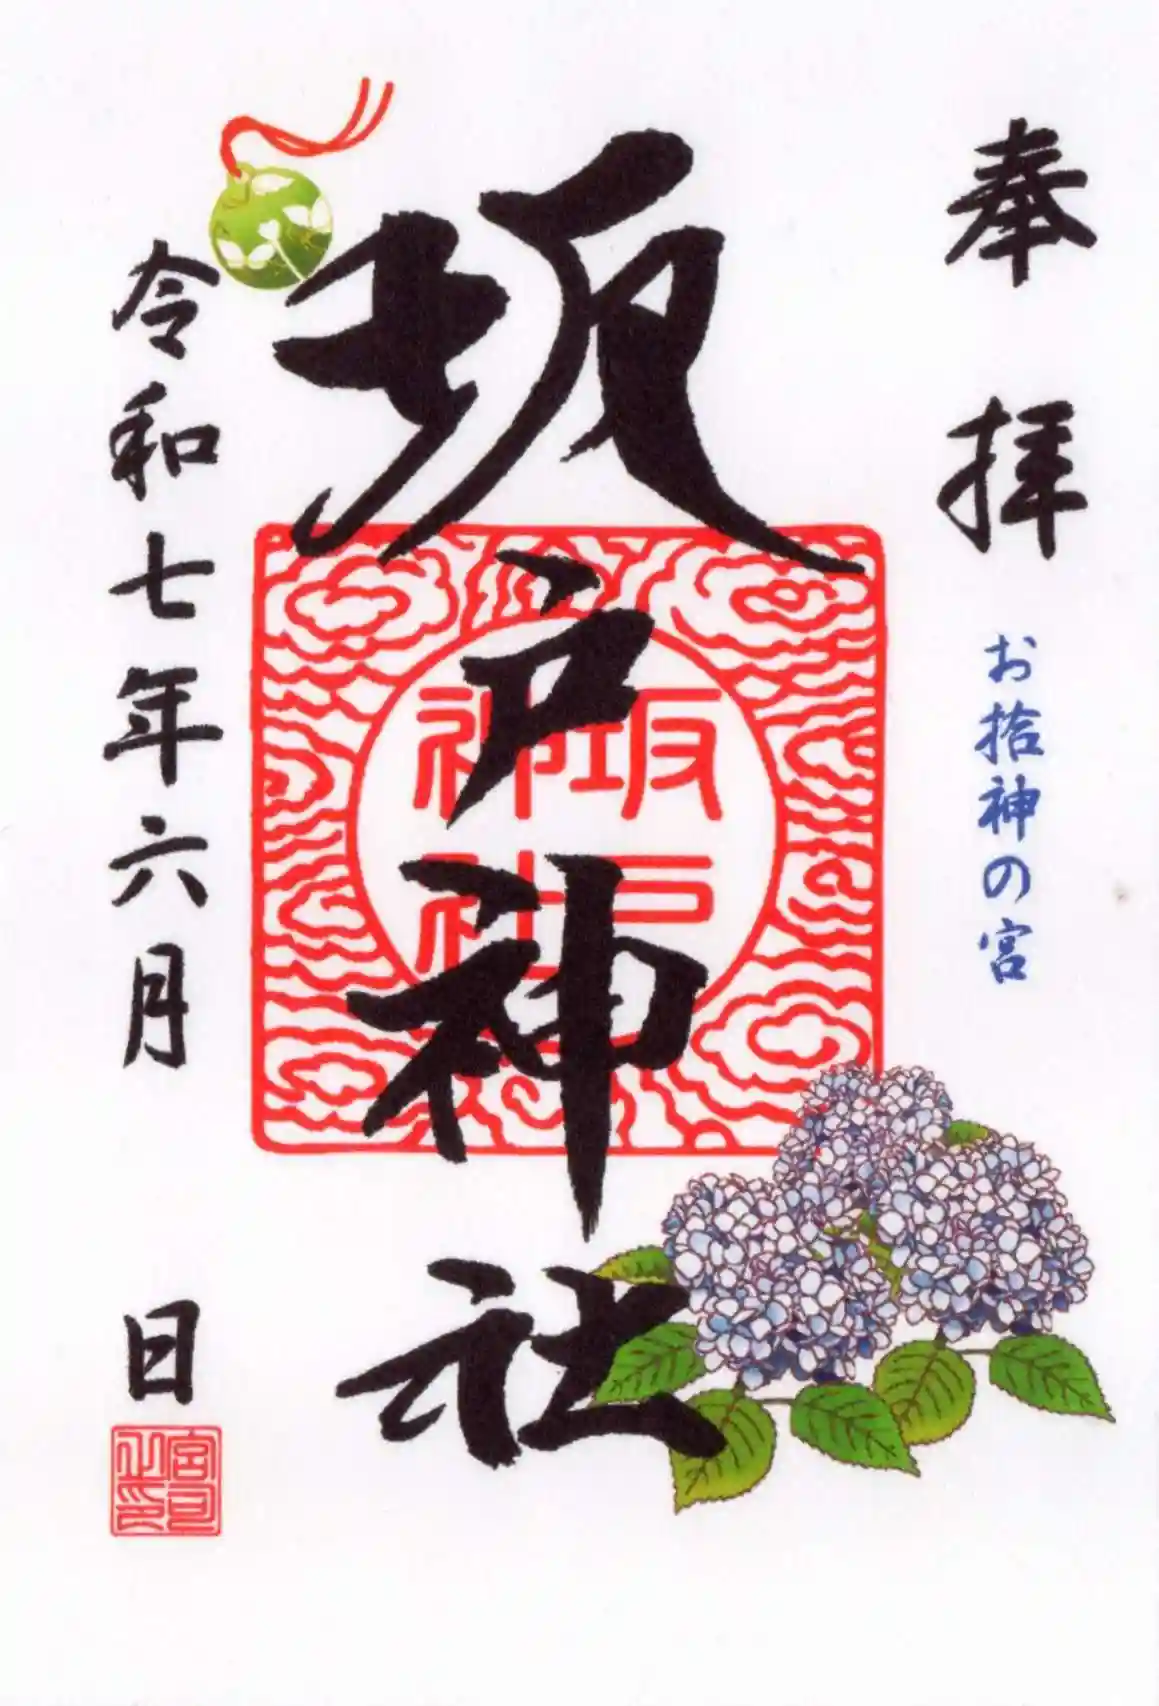 奉拝
お拾神の宮
坂戸神社
坂戸
神社
令和七年六月　日
宮司之印